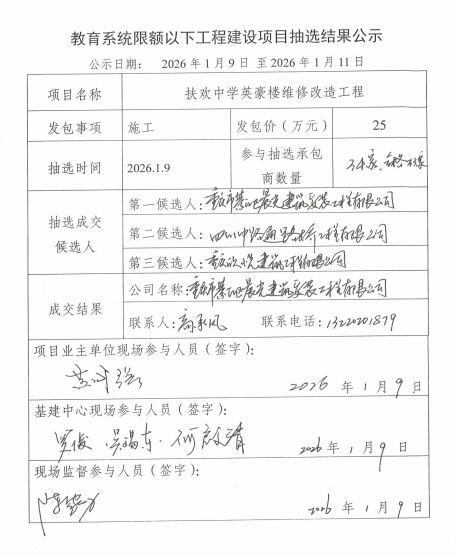 教育系统限额以下工程建设项目抽选结果公示
公示日期： 2026年1月9日 至2026年1月11日
项目名称 扶欢中学英豪楼维修改造工程
发包事项 施工 发包价（万元） 25
抽选时间 2026.1.9 参与抽选承包商数量 34家
抽选成交候选人
第一候选人：重庆市綦江区晨光建筑安装工程有限公司
第二候选人：四川中 路桥工程有限公司
第三候选人：重庆 建筑工程有限公司
成交结果
公司名称：重庆市綦江区晨光建筑安装工程有限公司
联系人： 联系电话：13220201879
项目业主单位现场参与人员（签字）：
2026 年 1 月 9 日
基建中心现场参与人员（签字）：
罗俊
2026 年 1 月 9 日
现场监督参与人员（签字）：
2026 年 1 月 9 日